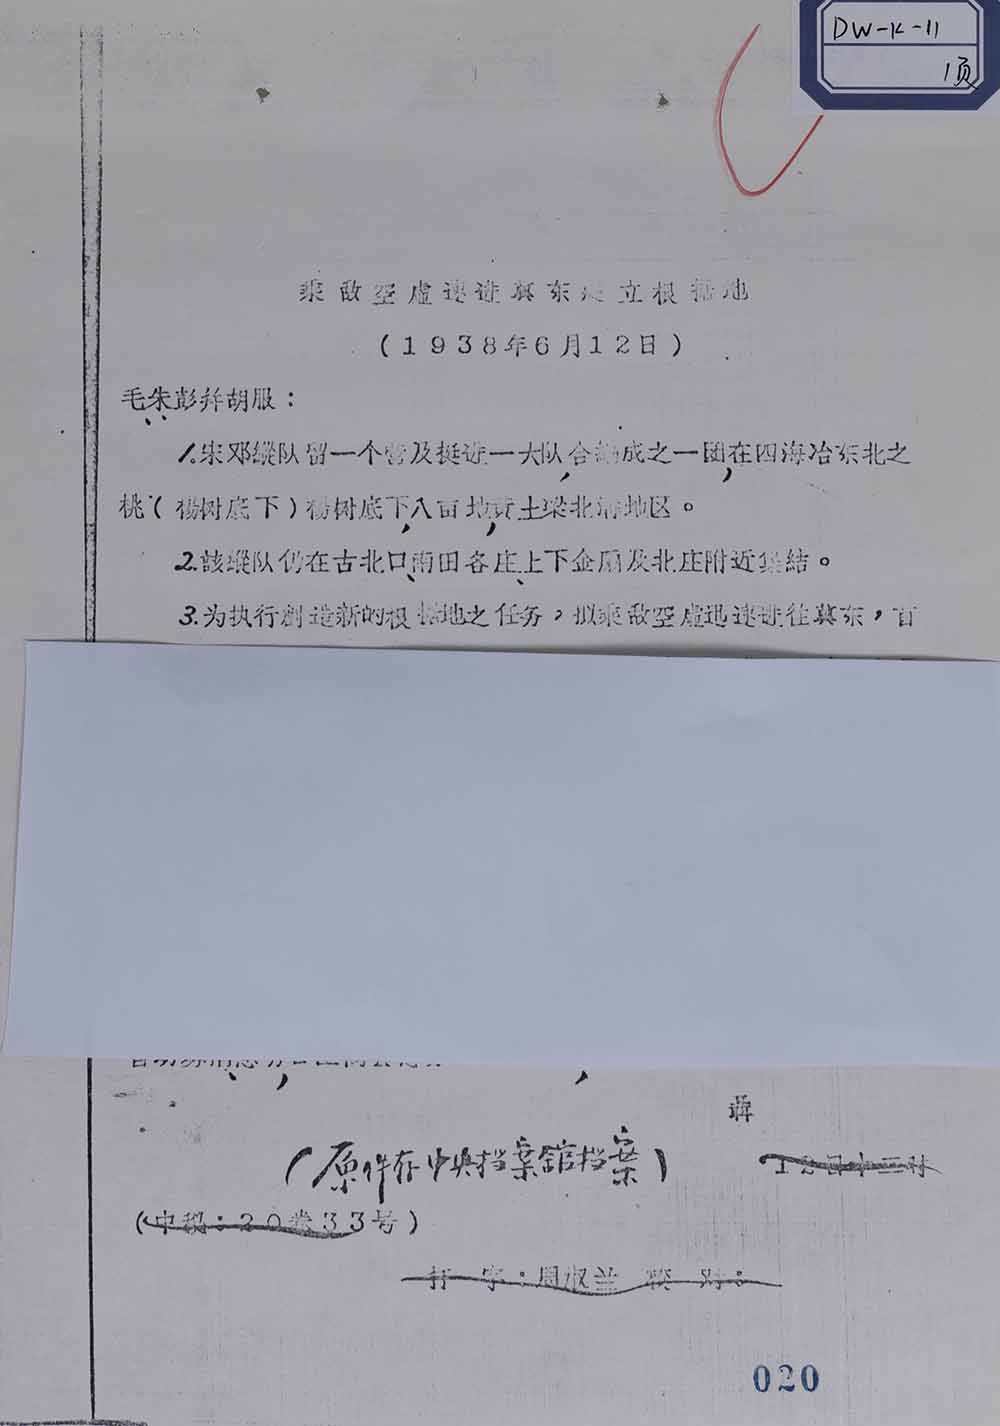 DW-K-11
1页
乘敌空虚速进冀东建立根据地
(1938年6月12日)
毛朱彭并胡服:
1.宋邓纵队留一个营及挺进一大队合编成之一团在四海冶东北之
桃(楊树底下)楊树底下八亩地黄土梁北沟地区。
2.該纵队仍在古北口南田各庄上下金扇及北庄附近集結。
3.为执行創造新的根据地之任务,拟乘敌空虚迅速进往冀东,首
(原件存中央档案館档案)
12日十二时
(中 :20卷33号)
打字:周淑兰 校对:
020